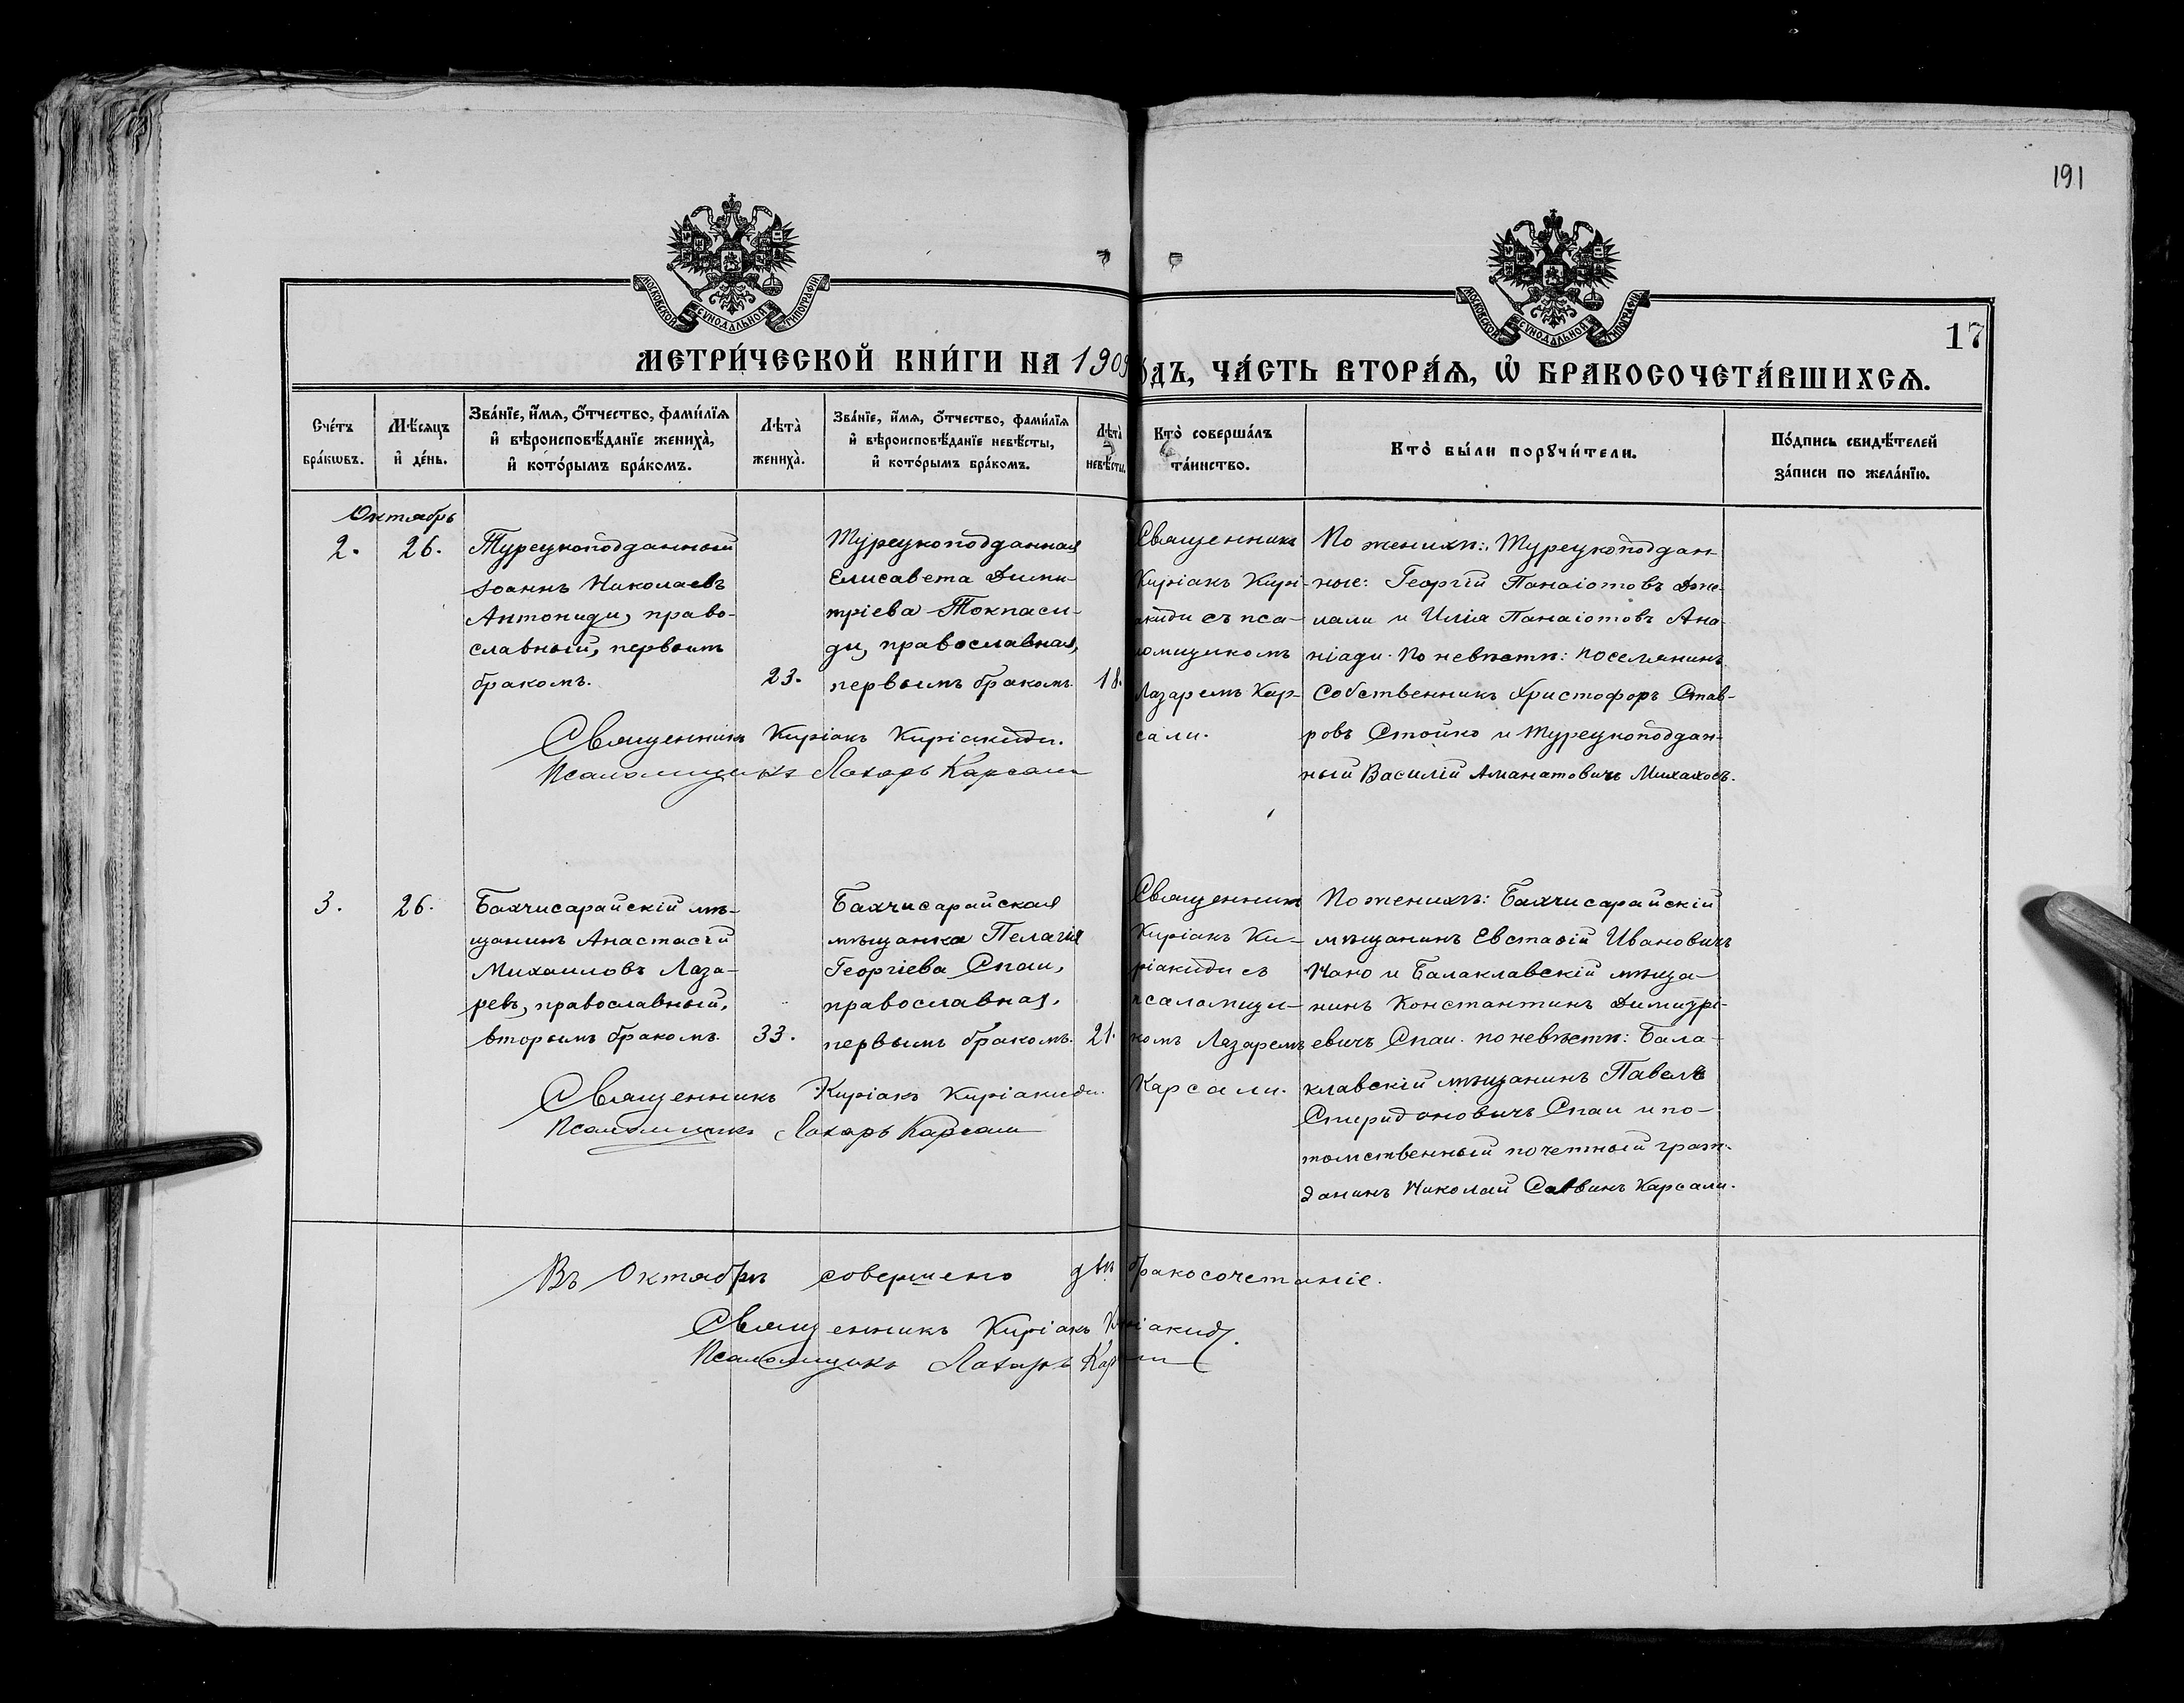 191
МОСКОВСКОЙ СѴНОДАЛЬНОЙ ТИПОГРАФІИ.
МОСКОВСКОЙ СѴНОДАЛЬНОЙ ТИПОГРАФІИ.
17
МЕТРИ́ЧЕСКОЙ КНИ́ГИ НА 1909
О́ДЪ, ЧА́СТЬ ВТОРА́Я, Ѡ҆ БРАКОСОЧЕТА́ВШИХСѦ.
Сче́тъ
бра́кѡвъ.
Мѣ́сяцъ
и҆ де́нь.
Зва́нїе, и҆́мѧ, ѻ҆́тчество, фами́лїѧ
и҆ вѣроисповѣ́данїе жениха̀,
и҆ кото́рымъ бра́комъ.
Лѣта̀
жениха̀.
Зва́нїе, и҆́мѧ, ѻ҆́тчество, фами́лїѧ
и҆ вѣроисповѣ́данїе невѣ́сты,
и҆ кото́рымъ бра́комъ.
Лѣта̀
невѣ́сты.
Кто̀ соверша́лъ
та́инство.
Кто̀ бы́ли порꙋчи́тели.
По́дпись свидѣ́телей
за́писи по жела́нїю.
Октябрь
2.
26.
Турецкоподданный
Іоаннъ Николаевъ
Антониди, право-
славный, первымъ
бракомъ.
23.
Турецкоподданная
Елисавета Дими-
тріева Токпаси-
ди, православная,
первымъ бракомъ.
18.
Священникъ
Киріакъ Кирі-
акиди съ пса-
ломщикомъ
Лазаремъ Кар-
сали.
По женихѣ: Турецкоподдан-
ные: Георгій Панаіотовъ Дже-
лали и Илія Панаіотовъ Ана-
ніади. По невѣстѣ: поселянинъ
собственникъ Христофоръ Став-
ровъ Стойко и Турецкоподдан-
ный Василій Аманатовичъ Михаховъ.
Священникъ Киріакъ Киріакиди.
Псаломщикъ Лазарь Карсали
3.
26.
Бахчисарайскій мѣ-
щанинъ Анастасій
Михаиловъ Лаза-
ревъ, православный,
вторымъ бракомъ.
33.
Бахчисарайская
мѣщанка Пелагія
Георгіева Спаи,
православная,
первымъ бракомъ.
21.
Священникъ
Киріакъ Ки-
ріакиди съ
псаломщи-
комъ Лазаремъ
Карсали.
По женихѣ: Бахчисарайскій
мѣщанинъ Евстафій Ивановичъ
Чано и Балаклавскій мѣща-
нинъ Константинъ Димитрі-
евичъ Спаи. по невѣстѣ: Бала-
клавскій мѣщанинъ Павелъ
Спиридоновичъ Спаи и по-
томственный почетный граж-
данинъ Николай Саввинъ Карсали.
Священникъ Киріакъ Киріакиди.
Псаломщикъ Лазарь Карсали
Въ Октябрѣ совершено двѣ бракосочетаніе.
Священникъ Киріакъ Киріакиди.
Псаломщикъ Лазарь Карсали